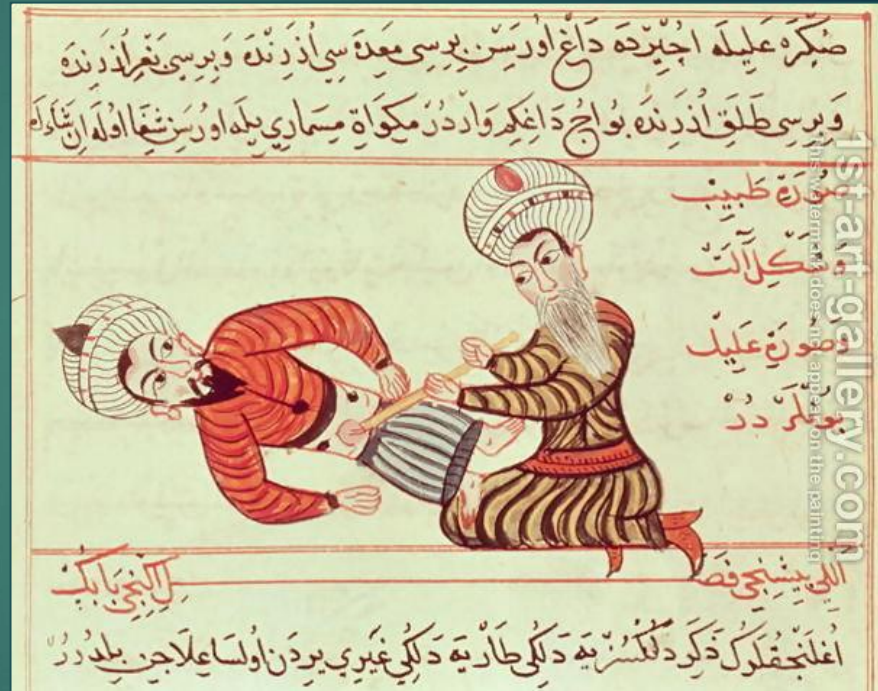 صكره عليله اچ يرده داغ اورسن برسى معده سى اذرنده وبرسى بغر اذرنده
وبرسى طلق اذرنده بواج داغكم واردر مكواة مسمارى يله اورسن شفا اوله ان شاء الله
صورة طبيب
وشكل آلت
وصورة عليل
بونلر در
اللى بشنجى فصل اكنجى بابك
ذكر دلكسزيه دلكى طاريه دلكى غيرى يردن اولسا علاجن بلدرر
1st-art-gallery.com
This watermark does not appear on the painting